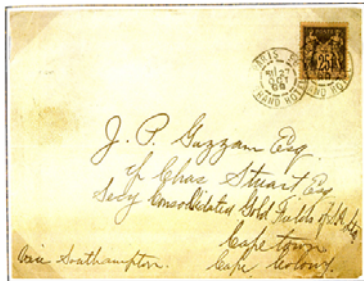 POSTE
25
PARIS
GRAND HOTEL
J. P. Gazzam Esq.
c/o Chas Stuart Esq
Secy Consolidated Gold Fields of
Cape town.
Cape Colony.
Via Southampton.